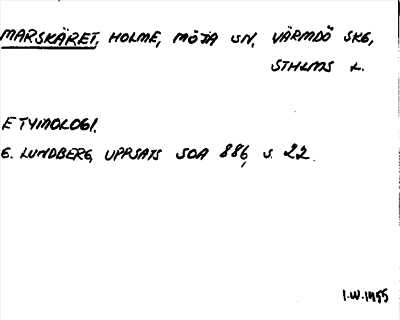 MARSKÄRET, HOLME, MÖJA SN, VÄRMDÖ SKG,
STHLMS L.
ETYMOLOGI.
G. LUNDBERG, UPPSATS SOA 886, s. 22.
I.W. 1955